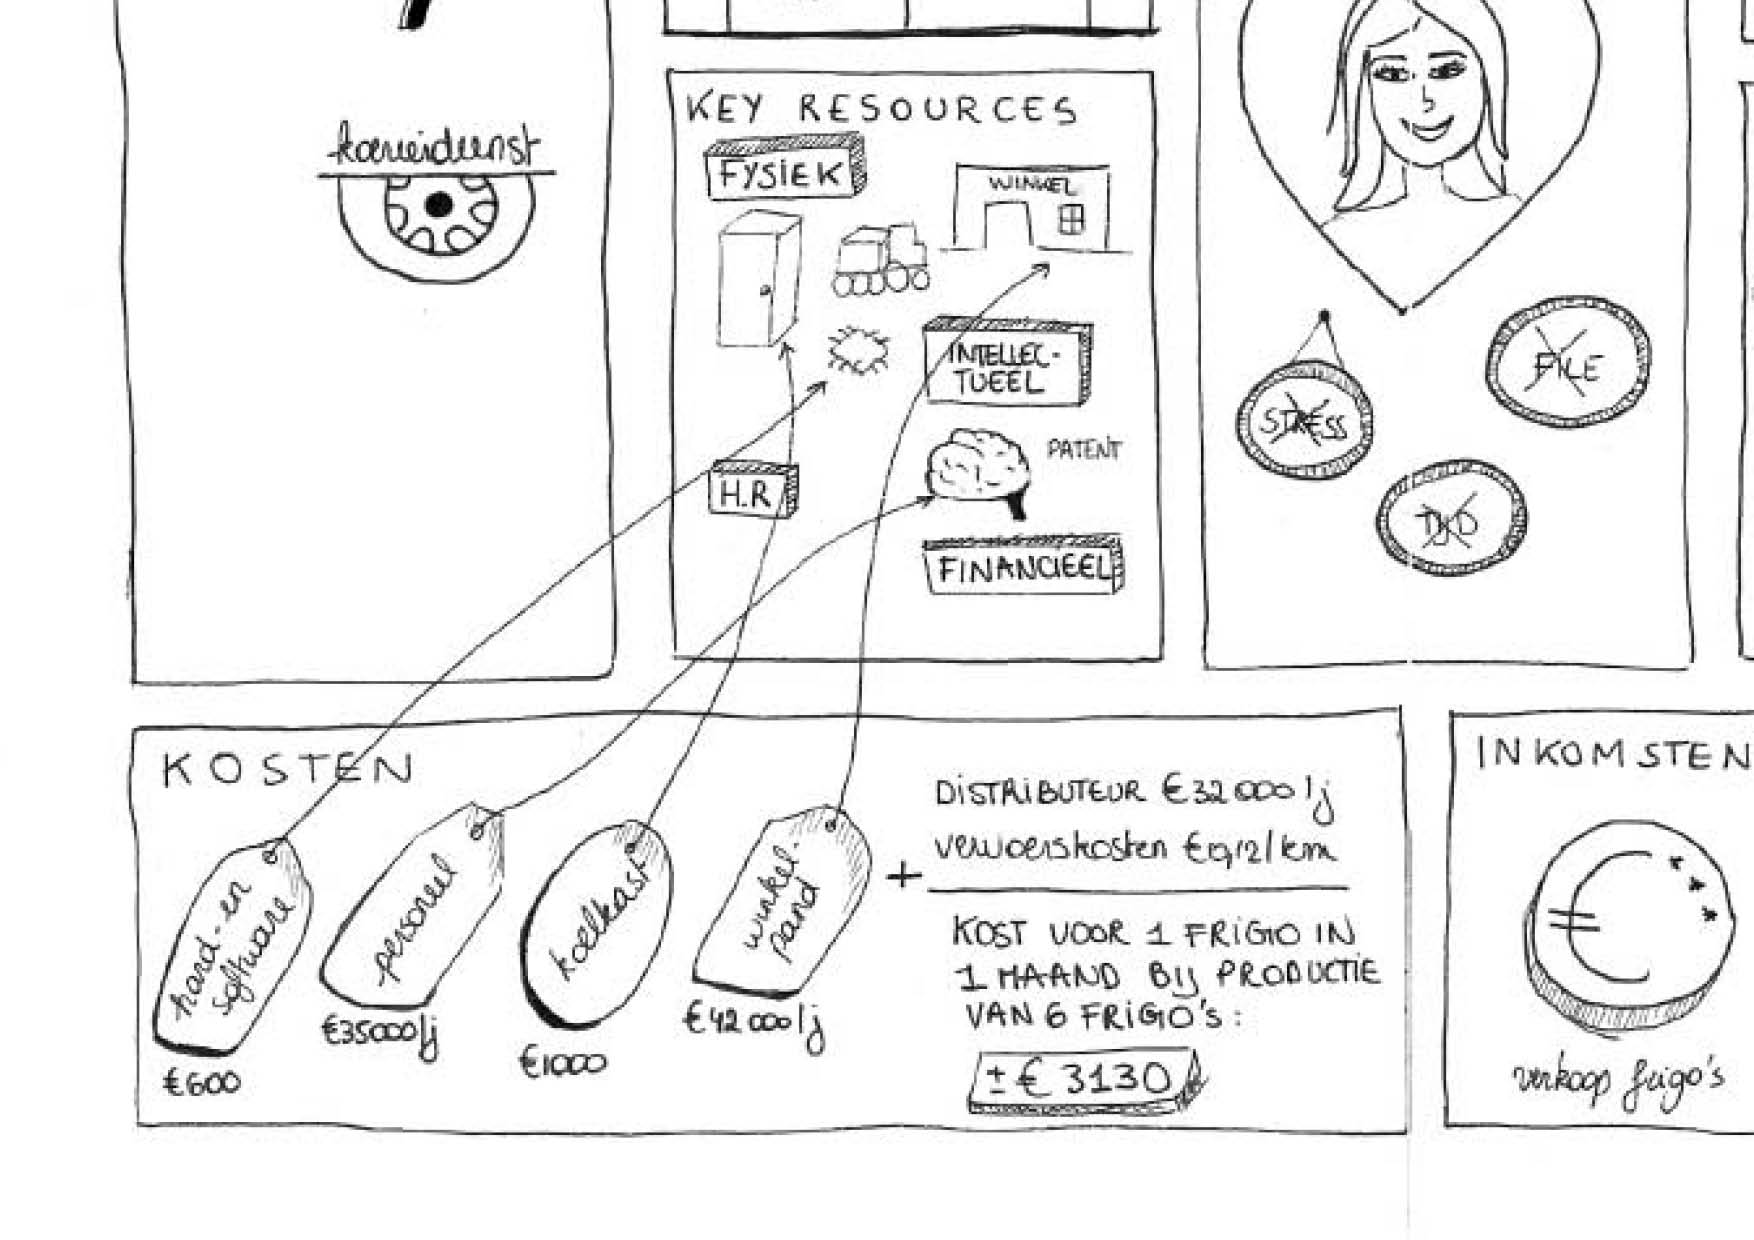 koerierdienst
KEY RESOURCES
FYSIEK
WINKEL
INTELLEC-
TUEEL
PATENT
H.R
FINANCIEEL
STRESS
FILE
TIJD
KOSTEN
hard- en
software
€600
personeel
€35000/j
koelkast
€1000
winkel-
pand
€42000/j
+
DISTRIBUTEUR €32000/j
vervoerskosten €0,12/km
KOST VOOR 1 FRIGO IN
1 MAAND BIJ PRODUCTIE
VAN 6 FRIGO'S:
± € 3130
INKOMSTEN
verkoop frigo's